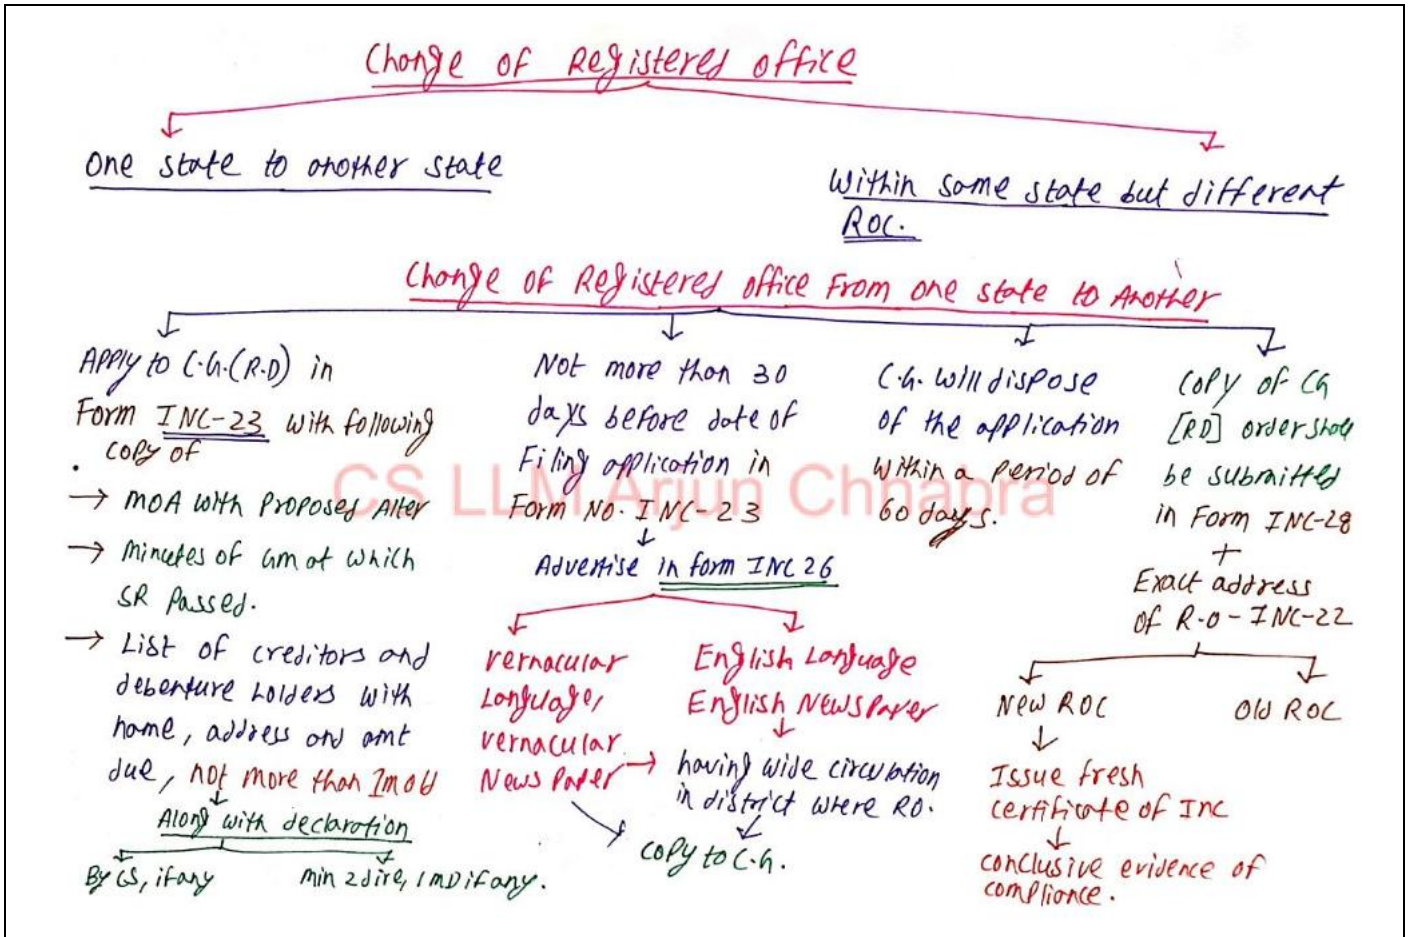 Change of Registered office
One state to another state
Within same state but different
ROC.
Change of Registered office From one state to Another
Apply to C.G.(R.D) in
Form INC-23 with following
copy of
→ MOA with Proposed Alter
→ Minutes of GM at which
SR Passed.
→ List of creditors and
debenture holders with
name, address and amt
due, not more than 1m old
Along with declaration
By CS, if any
min 2 dire, 1 MD if any.
Not more than 30
days before date of
Filing application in
Form No. INC-23
Advertise in form INC 26
vernacular
Language,
vernacular
News Paper
English Language
English News Paper
having wide circulation
in district where RO.
copy to C.G.
C.G. will dispose
of the application
within a period of
60 days.
Copy of CG
[RD] order shall
be submitted
in Form INC-28
+
Exact address
of R.O - INC-22
New ROC
Old ROC
Issue fresh
certificate of Inc
conclusive evidence of
compliance.
CS LLM Arjun Chhabra